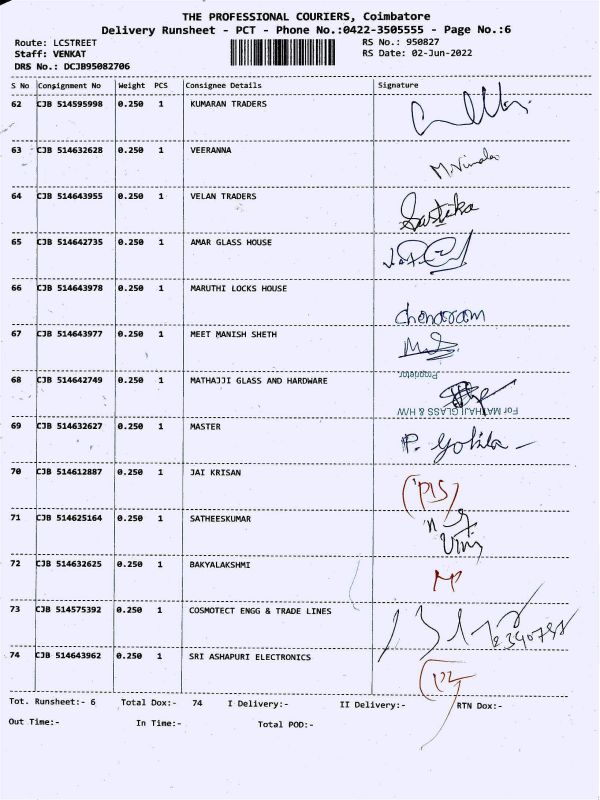 THE PROFESSIONAL COURIERS, Coimbatore
Delivery Runsheet - PCT - Phone No.:0422-3505555 - Page No.:6
Route: LCSTREET RS No.: 950827
Staff: VENKAT RS Date: 02-Jun-2022
DRS No.: DCJB95082706
S No Consignment No Weight PCS Consignee Details Signature
62 CJB 514595998 0.250 1 KUMARAN TRADERS
63 CJB 514632628 0.250 1 VEERANNA
64 CJB 514643955 0.250 1 VELAN TRADERS
Sastika
65 CJB 514642735 0.250 1 AMAR GLASS HOUSE
66 CJB 514643978 0.250 1 MARUTHI LOCKS HOUSE
Chenaram
67 CJB 514643977 0.250 1 MEET MANISH SHETH
68 CJB 514642749 0.250 1 MATHAJJI GLASS AND HARDWARE
Proprietor
For MATHAJI GLASS & H/W
69 CJB 514632627 0.250 1 MASTER
P. Gokila
70 CJB 514612887 0.250 1 JAI KRISAN
71 CJB 514625164 0.250 1 SATHEESKUMAR
72 CJB 514632625 0.250 1 BAKYALAKSHMI
73 CJB 514575392 0.250 1 COSMOTECT ENGG & TRADE LINES
74 CJB 514643962 0.250 1 SRI ASHAPURI ELECTRONICS
Tot. Runsheet:- 6 Total Dox:- 74 I Delivery:- II Delivery:- RTN Dox:-
Out Time:- In Time:- Total POD:-